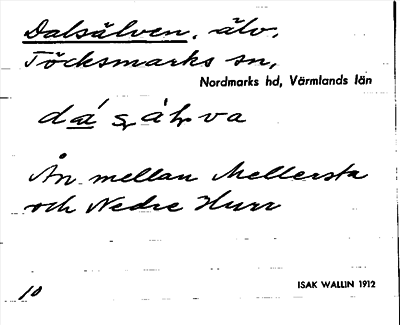 Dalsälven, älv,
Töcksmarks sn,
Nordmarks hd, Värmlands län
Ån mellan Mellersta
och Nedre Hurr
10
ISAK WALLIN 1912